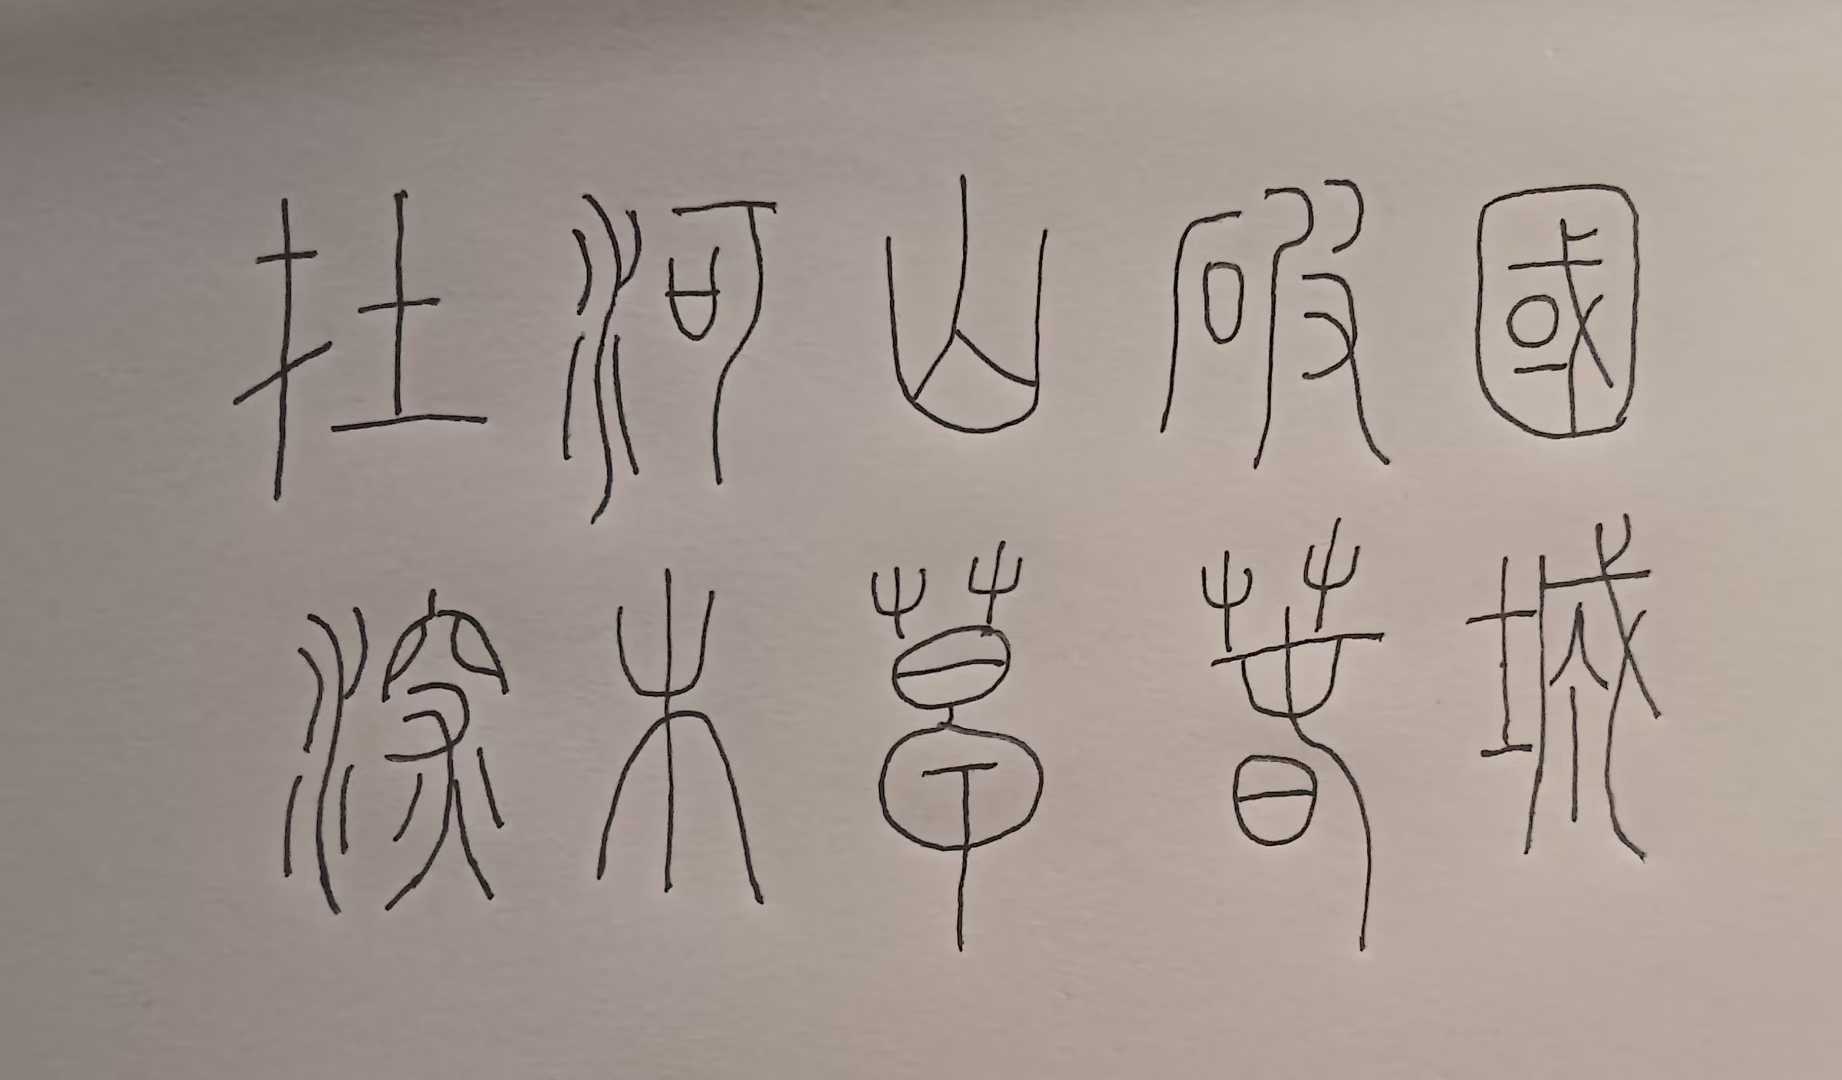 國破山河在
城春草木深